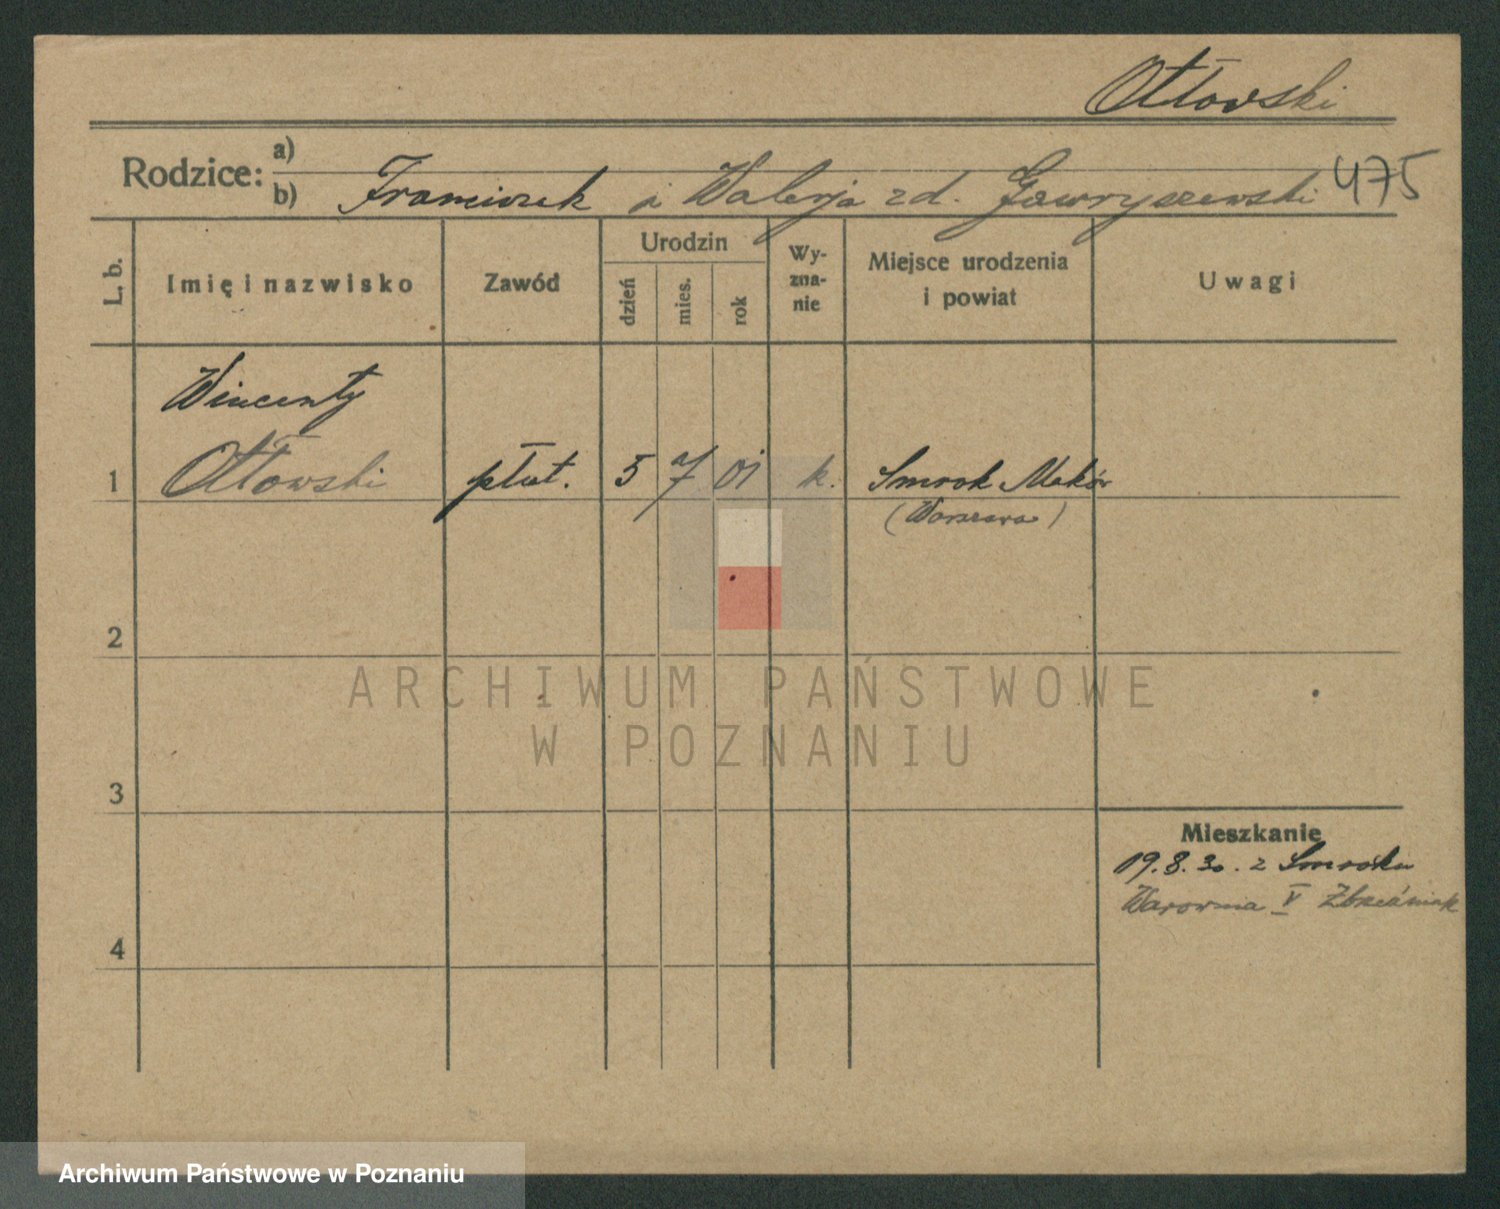 Otłowski
Rodzice: a)
b) Franciszek i Walerja zd. Gawryszewski 475
L. b.
Imię i nazwisko
Zawód
Urodzin
dzień
mies.
rok
Wy-
zna-
nie
Miejsce urodzenia
i powiat
Uwagi
Wincenty
1 Otłowski plut. 5 7 01 k. Smrok Maków
(Warszawa)
2
ARCHIWUM PAŃSTWOWE
W POZNANIU
3
Mieszkanie
19.8.30. z Smroku
Warownia V
4
Archiwum Państwowe w Poznaniu